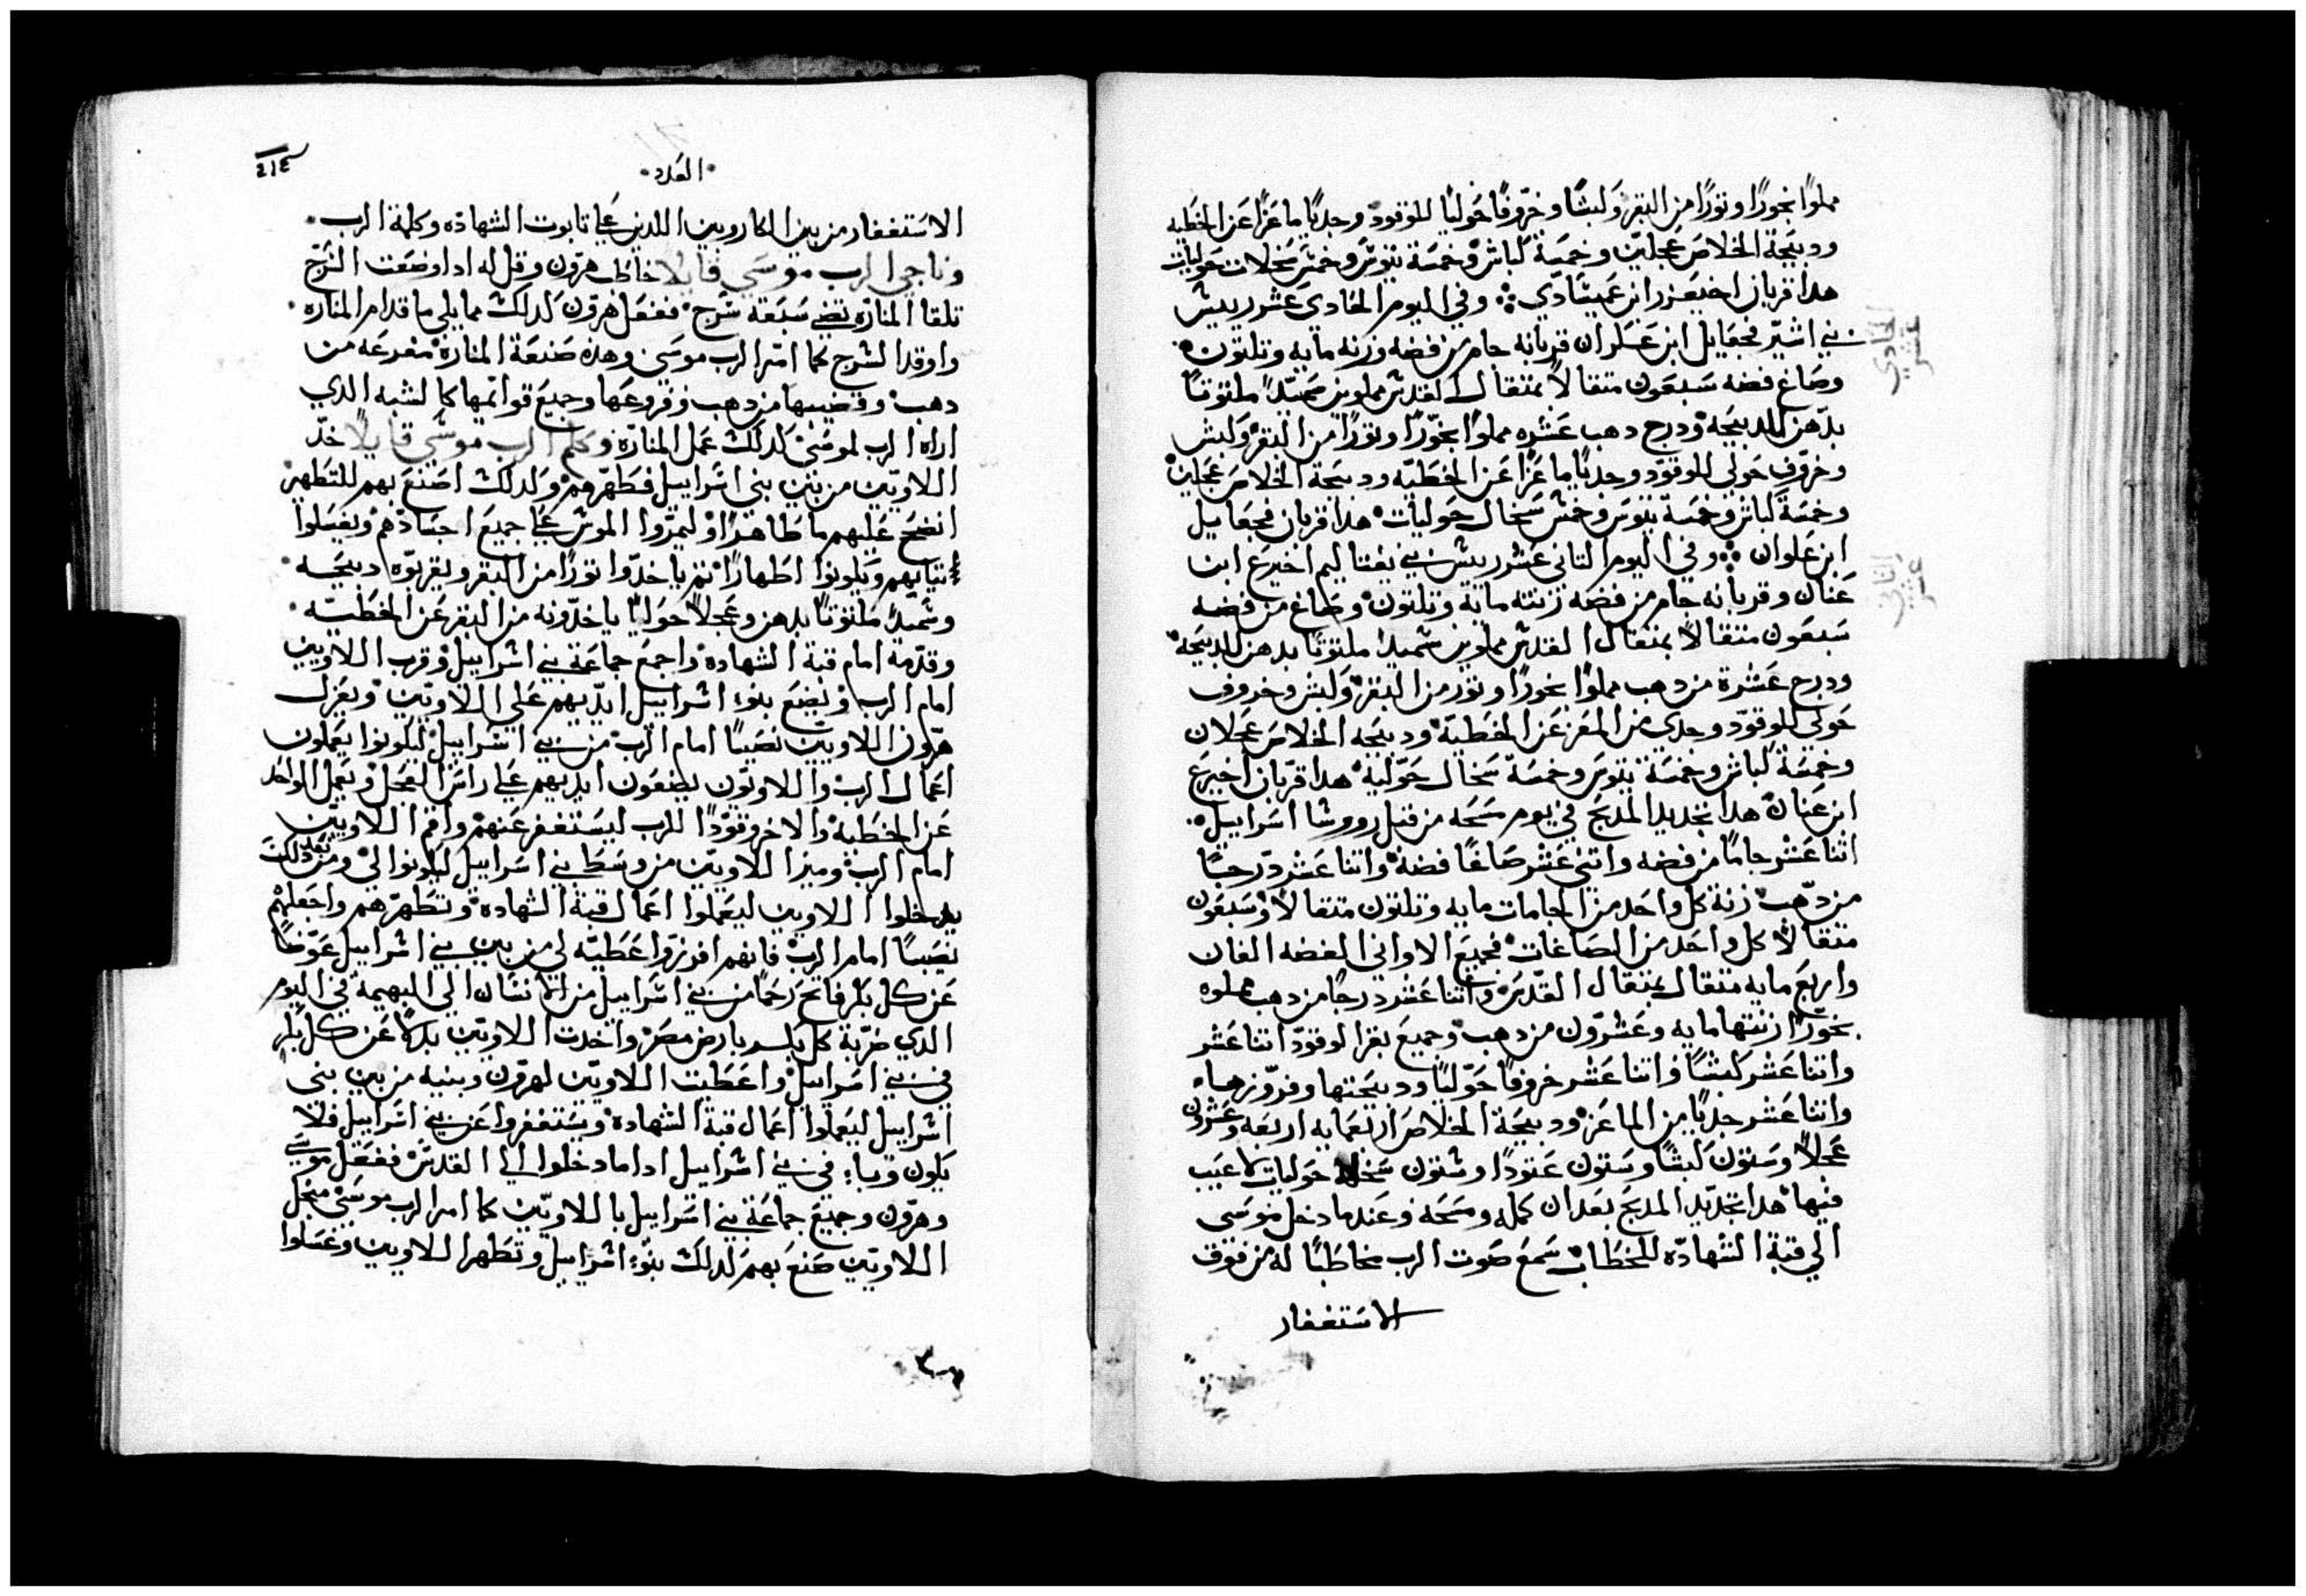 مملوًا بخورًا وتورًا من البقر وكبشًا وخروفًا حوليًا للوقود وجديًا ماعزًا عن الخطيه
ودبيحة الخلاص عجلين وخمسة كباش وخمسة تيوس وخمس سخلات حوليات
هدا قربان اخيعزر ابن عميشادي ؞ وفي اليوم الحادي عشر رييس
بني اشير فجعاييل ابن عسكران قربانه جام من فضه وزنه مايه وتلتون
وصاغ فضه سبعون متقالًا بمتقال القدس مملوين سميدًا ملتوتًا
بدهن للدبيحه ودرج دهب عشره مملوًا بخورًا وتورًا من البقر وكبش
وخروف حولي للوقود وجديًا ماعزًا عن الخطيه ودبيحة الخلاص عجلين
وخمسة كباش وخمسة تيوس وخمس سخال حوليات هدا قربان فجعاييل
ابن عكران ؞ وفي اليوم التاني عشر رييس بني نفتاليم اخيرع ابن
عنان وقربانه جام من فضه زنته مايه وتلتون وصاغ من فضه
سبعون متقالًا بمتقال القدس مملوين سميدًا ملتوتًا بدهن للدبيحه
ودرج عشرة من دهب مملوًا بخورًا وتور من البقر وكبش وخروف
حولي للوقود وجدي من المعز عن الخطية ودبيحه الخلاص عجلان
وخمسة كباش وخمسة تيوس وخمسة سخال حولية هدا قربان اخيرع
ابن عنان هدا تجديد المدبح في يوم مسحه من قبل رووسا اسراييل
اتنا عشر جامًا من فضه واتني عشر صاغًا فضة واتنا عشر درجًا
من دهب زنة كل واحد من الجامات مايه وتلتون متقالًا وسبعون
متقالًا كل واحد من الصاغات فجميع الاواني الفضه الفان
واربع مايه متقال بمتقال القدس واتنا عشر درجًا من دهب مملوه
بخورًا زنتها مايه وعشرون من دهب وجميع بقر الوقود اتنا عشر
واتنا عشر كبشًا واتنا عشر خروفًا حوليًا ودبيحتها وفروزها
واتنا عشر جديًا من الماعز ودبيحة الخلاص اربعه وعشرون
عجلًا وستون كبشًا وستون عتودًا وستون سخله حوليات لا عيب
فيها هدا تجديد المدبح بعد ان كمله ومسحه وعندما دخل موسى
الى قبة الشهاده للخطاب سمع صوت الرب مخاطبًا له من فوق
الاستغفار
الحادي عشر
التاني عشر
العدد
٤١٤
الاستغفار من بين الكاروبين اللدين علي تابوت الشهاده وكلمة الرب
وناجى الرب موسى قايلًا خاطب هرون وقل له ادا وضعت السرج
تلقا المناره تضي سبعة سرج ففعل هرون كدلك مما يلي ما قدام المناره
واوقد السرج كما امر الرب موسى وهده صنعة المنارة مفرغه من
دهب وقضيبها من دهب وفروعها وجميع قوايمها كالشبه الدي
اراه الرب لموسى كدلك عمل المنارة وكلم الرب موسى قايلًا خد
اللاويين من بين بني اسراييل فطهرهم وكدلك اصنع بهم للتطهير
انضح عليهم ما طاهرًا وليمروا الموس علي جميع اجسادهم ويغسلوا
تيابهم ويكونوا اطهارًا تم ياخدوا تورًا من البقر ويقربوه دبيحه
وسميدًا ملتوتًا بدهن وعجلًا حوليًا ياخدونه من البقر عن الخطيه
وقدمه امام قبة الشهادة واجمع جماعة بني اسراييل وقرب اللاويين
امام الرب ويضع بنو اسراييل ايديهم علي اللاويين ويعزل
هرون اللاويين نصيبًا امام الرب من بني اسراييل ليكونوا يعملون
اعمال الرب واللاويون يضعون ايديهم علي راس العجل ويعمل الواحد
عن الخطية والاخر وقودًا للرب ليستغفر عنهم واقم اللاويين
امام الرب وميز اللاويين من وسط بني اسراييل ليكونوا لي ومن بعد دلك
يدخلوا اللاويين ليعملوا اعمال قبة الشهادة وتطهرهم واجعلهم
نصيبًا امام الرب فانهم افرزوا عطيه لي من بين بني اسراييل عوضًا
عن كل بكر فاتح رحمًا من بني اسراييل من الانسان الي البهيمة في اليوم
الدي ضربة كل بكر بارض مصر واخدت اللاويين بدلًا عن كل بكر
في بني اسراييل واعطيت اللاويين لهرون وبنيه من بين بني
اسراييل ليعملوا اعمال قبة الشهادة ويستغفروا عن بني اسراييل فلا
يكون وباء في بني اسراييل ادا ما دخلوا الي القدس ففعل موسي
وهرون وجميع جماعة بني اسراييل باللاويين كما امر الرب موسى من اجل
اللاويين صنع بهم كدلك بنو اسراييل وتطهر اللاويين وغسلوا